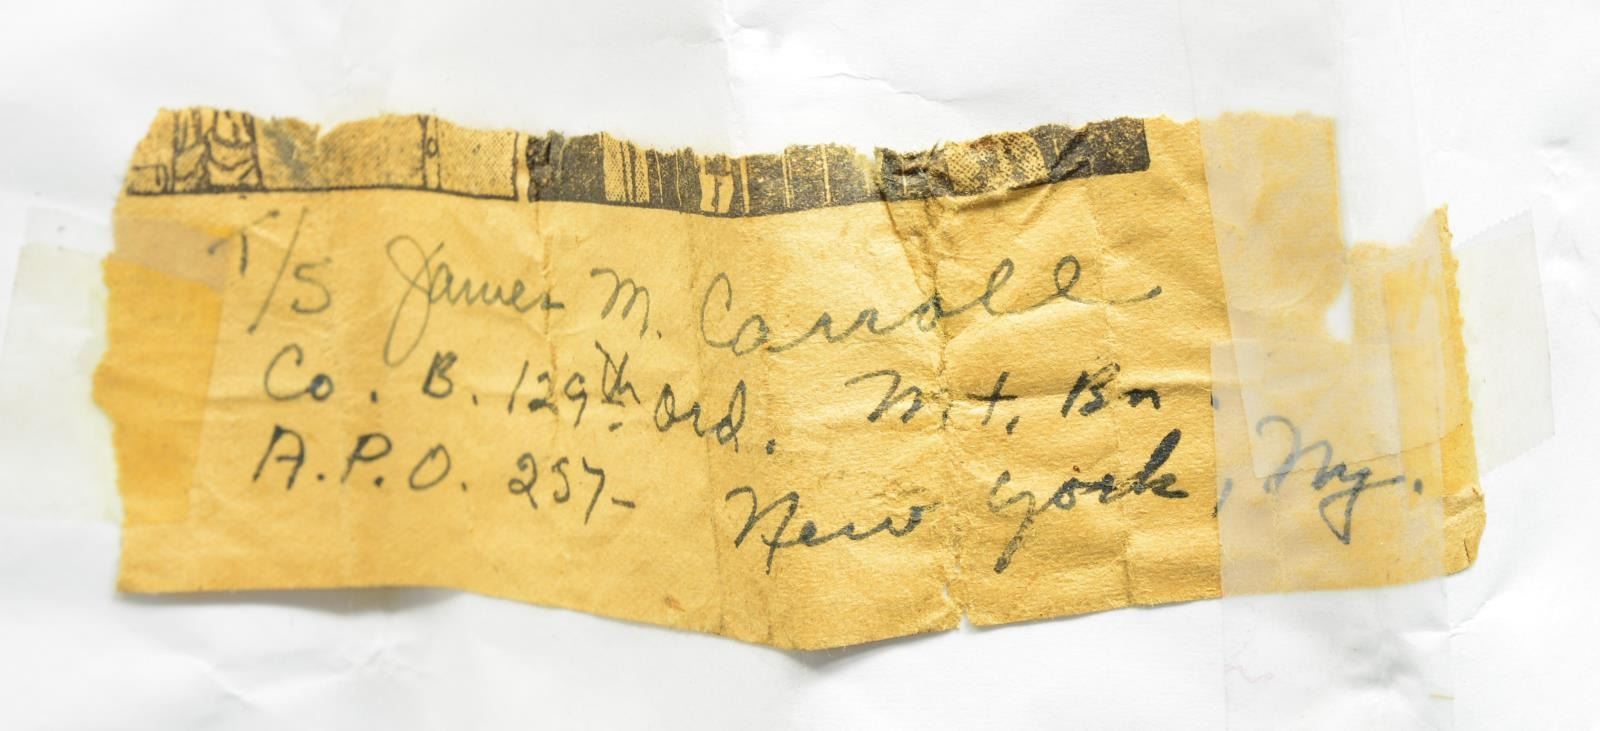 T/5 James M. Carroll
Co. B. 129th Ord. M.t. Bn.
A.P.O. 257- New York, Ny.